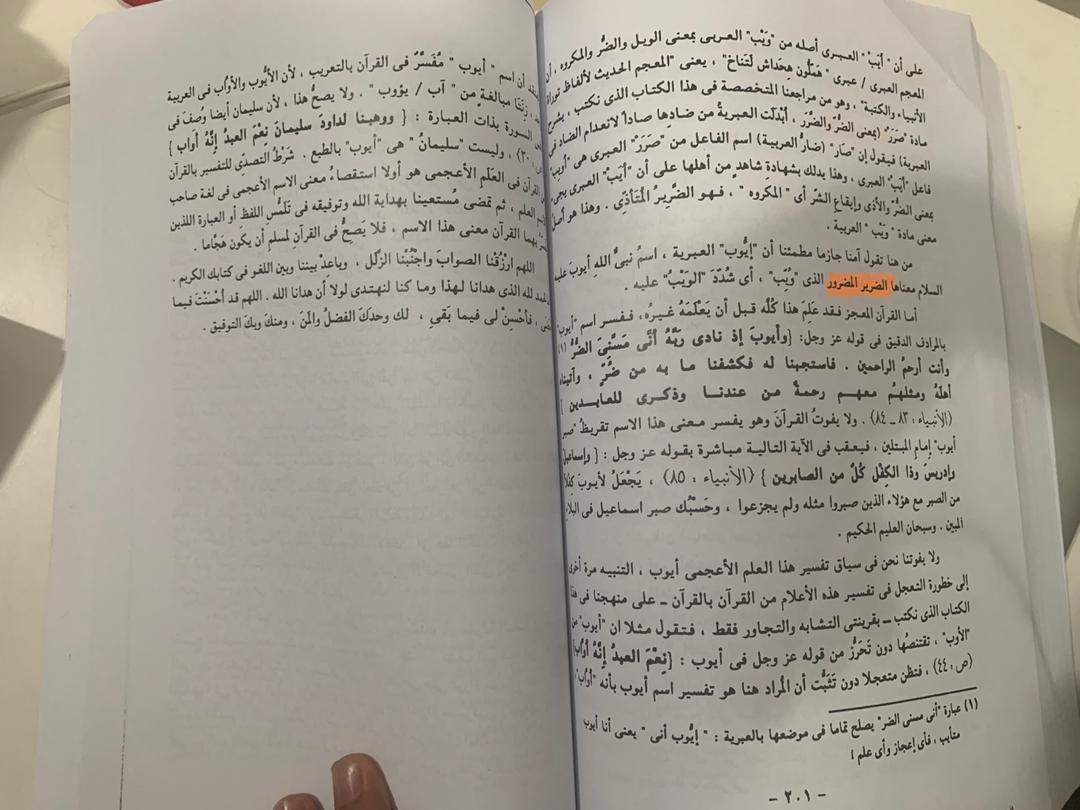 على أن "أيّب" العبرى أصله من "وَيْب" العربى بمعنى الويل والضُّر والمكروه ، أن
المعجم العبرى / عبرى "هَمِلُّون هِحَداش لَتَناخ" ، يعنى "المعجم الحديث لألفاظ توراة
الأنبياء والكتبة" ، وهو من مراجعنا المتخصصة فى هذا الكتاب الذى نكتب ، يشرح
مادة "صَرَرَ" (بمعنى الضُّر والضَّرَر ، أبْدَلَت العبريةُ من ضادها صاداً لانعدام الضاد فى
العبرية) فيقول إن "صَار" (ضارُّ العربية) اسم الفاعل من "صَرَرَ" العبرى هى "أويب"
فاعل "أيَب" العبرى ، وهذا يدلك بشهادةِ شاهدٍ من أهلها على أن "أيَبَ" العبرى يجىء
بمعنى الضُّر والأذى وإيقاع الشّر أى "المكروه" ، فـهو الضَّرِيرُ الْمتَأذِّى . وهذا هو أصلُ
معنى مادة "وَيْب" العربية .
من هنا تقول آمنا جازما مطمئنا أن "إيُّوب" العبرية ، اسمُ نبىِّ اللهِ أيوبَ عليه
السلام معناها الضرير المضرور الذى "وُيِّبَ" ، أى شُدِّدَ "الوَيْبُ" عليه .
أما القرآن المعجز فـقد علِمَ هذا كُلَّه قـبل أن يَعْلَمَهُ غيـرُه، فـفسر اسم "أيوب"
بالمرادف الدقيق فى قوله عز وجل: {وأيوبَ إذ نادى ربَّهُ أنِّى مَسَّنِىَ الضُّرُّ (١)
وأنت أرحمُ الراحمين . فاستجبنا له فكشفنا ما به من ضُرٍّ ، وآتيناه
أهلَهُ ومثلَهُم معهـم رحمةً من عندنا وذكـرى للعابـدين }
(الأنبياء : ٨٣ ــ ٨٤) . ولا يفوتُ القرآنَ وهو يفسر معنى هذا الاسم تقريظُ "صبر
أيوب" إمام المبتلين ، فيعقب فى الآية التالية مباشرة بقوله عز وجل : { وإسماعيلَ
وإدريسَ وذا الكِفْل كُلٌّ من الصابرين } (الأنبياء : ٨٥) ، يَجْعَلُ لأيوبَ كِفْلاً
من الصبر مع هؤلاء الذين صبروا مثله ولم يجزعوا ، وحَسْبُك صبر اسماعيل فى البلاءِ
المبين . وسبحان العليم الحكيم .
ولا يفوتنا نحن فى سياق تفسير هذا العلم الأعجمى أيوب ، التنبيه مرة أخرى
إلى خطورة التعجل فى تفسير هذه الأعلام من القرآن بالقرآن ــ على منهجنا فى هذا
الكتاب الذى نكتب ــ بقرينتى التشابه والتجاور فقط ، فـتقول مثلا ان "أيوب" من
"الأوب" ، تقتنصُها دون تَحَرُّز من قوله عز وجل فى أيوب : {نِعْمَ العبدُ إنَّهُ أوَّاب}
(ص : ٤٤) ، فتظن متعجلا دون تَثَبُّت أن المُراد هنا هو تفسير اسم أيوب بأنه "أوَّاب"،
(١) عبارة "أنى مسنى الضر" يصلح تماما فى موضعها بالعبرية : " إيُّوب أنى " يعنى أنا أيوب
متأيب ، فأى إعجاز وأى علم !
- ٢٠١ -
أن اسم " أيوب " مُفَسَّرٌ فى القرآن بالتعريب ، لأن الأيُّوب والأوَّاب فى العربية
زِنَتَا مبالغةٍ من " آب / يؤوب " . ولا يصحُّ هذا ، لأن سليمان أيضا وُصفَ فى
السورة بذات العبارة : { ووهبـنا لداودَ سليمانَ نِعْمَ العبدُ إنَّهُ أواب }
٣٠) ، وليست "سليمانُ" هى "أيوب" بالطبع . شَرْطُ التصدِّى للتفسير بالقرآن
القرآن فى العَلَم الأعجمى هو أولا استقصاءُ معنى الاسم الأعجمى فى لغة صاحب
العلم ، ثم تمضى مُستعينا بهداية الله وتوفيقه فى تَلَمُّسِ اللفظ أو العبارة اللذين
بهما القرآن معنى هذا الاسم ، فلا يَصحُّ فى القرآن لمسلم أن يكون هَجَّاما .
اللهم ارْزُقْنا الصوابَ واجْنُبْنا الزَّلَل ، وباعدْ بيننا وبين اللغو فى كتابك الكريم .
لله الذى هدانا لهذا وما كنا لنهتدى لولا أن هدانا الله . اللهم قد أحْسَنْتَ فيما
فأحْسِنْ لى فيما بَقىِ ، لك وحدَكَ الفضلُ والمَن ، ومنكَ وبكَ التوفيق .